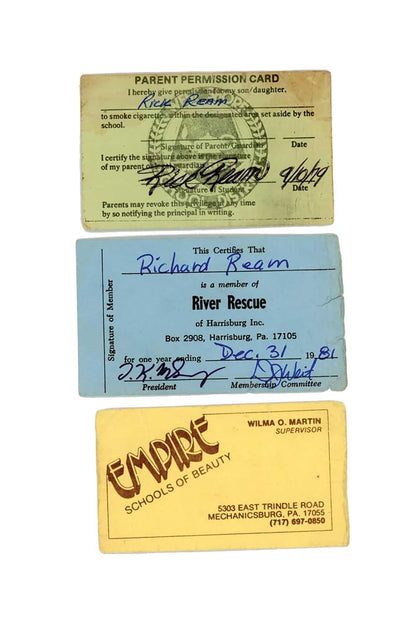 PARENT PERMISSION CARD
I hereby give permission for my son/daughter,
Rick Ream
to smoke cigarettes within the designated area set aside by the
school.
Signature of Parent/Guardian Date
I certify the signature above is the signature
of my parent or legal guardian.
Rick Ream 9/10/79
Signature of Student Date
Parents may revoke this privilege at any time
by so notifying the principal in writing.
Signature of Member
This Certifies That
Richard Ream
is a member of
River Rescue
of Harrisburg Inc.
Box 2908, Harrisburg, Pa. 17105
for one year ending Dec. 31 1981
President Membership Committee
EMPIRE
SCHOOLS OF BEAUTY
WILMA O. MARTIN
SUPERVISOR
5303 EAST TRINDLE ROAD
MECHANICSBURG, PA. 17055
(717) 697-0850